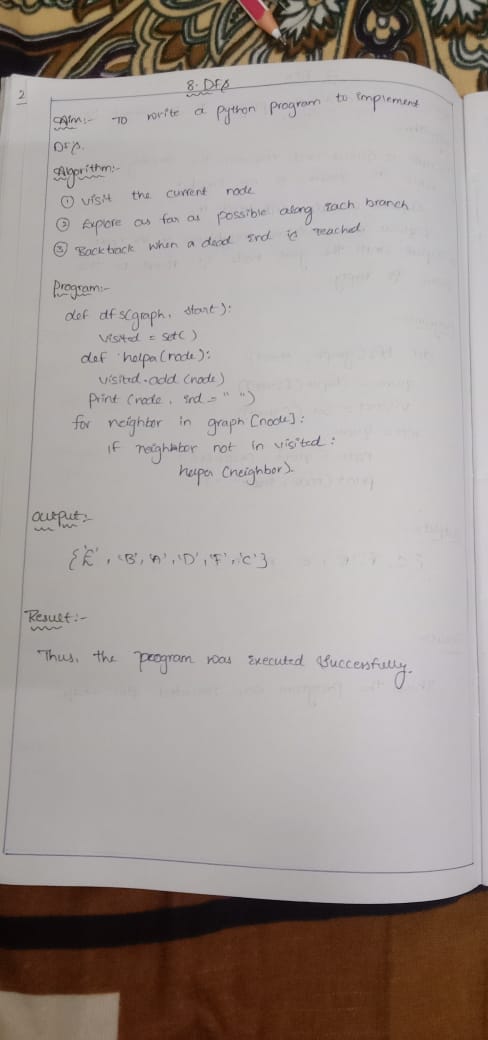 2
8. DFS
Aim:- To write a python program to implement
DFS.
Algorithm:-
① visit the current node
② Explore as far as possible along each branch
③ Backtrack when a dead end is reached.
Program:-
def dfs(graph, start):
visited = set( )
def helpa(node):
visited.add (node)
Print (node, end = " ")
for neighbor in graph [node]:
if neighbor not in visited:
helpa (neighbor).
Output:-
{'E', 'B', 'A', 'D', 'F', 'C'}
Result:-
Thus, the program was executed successfully.